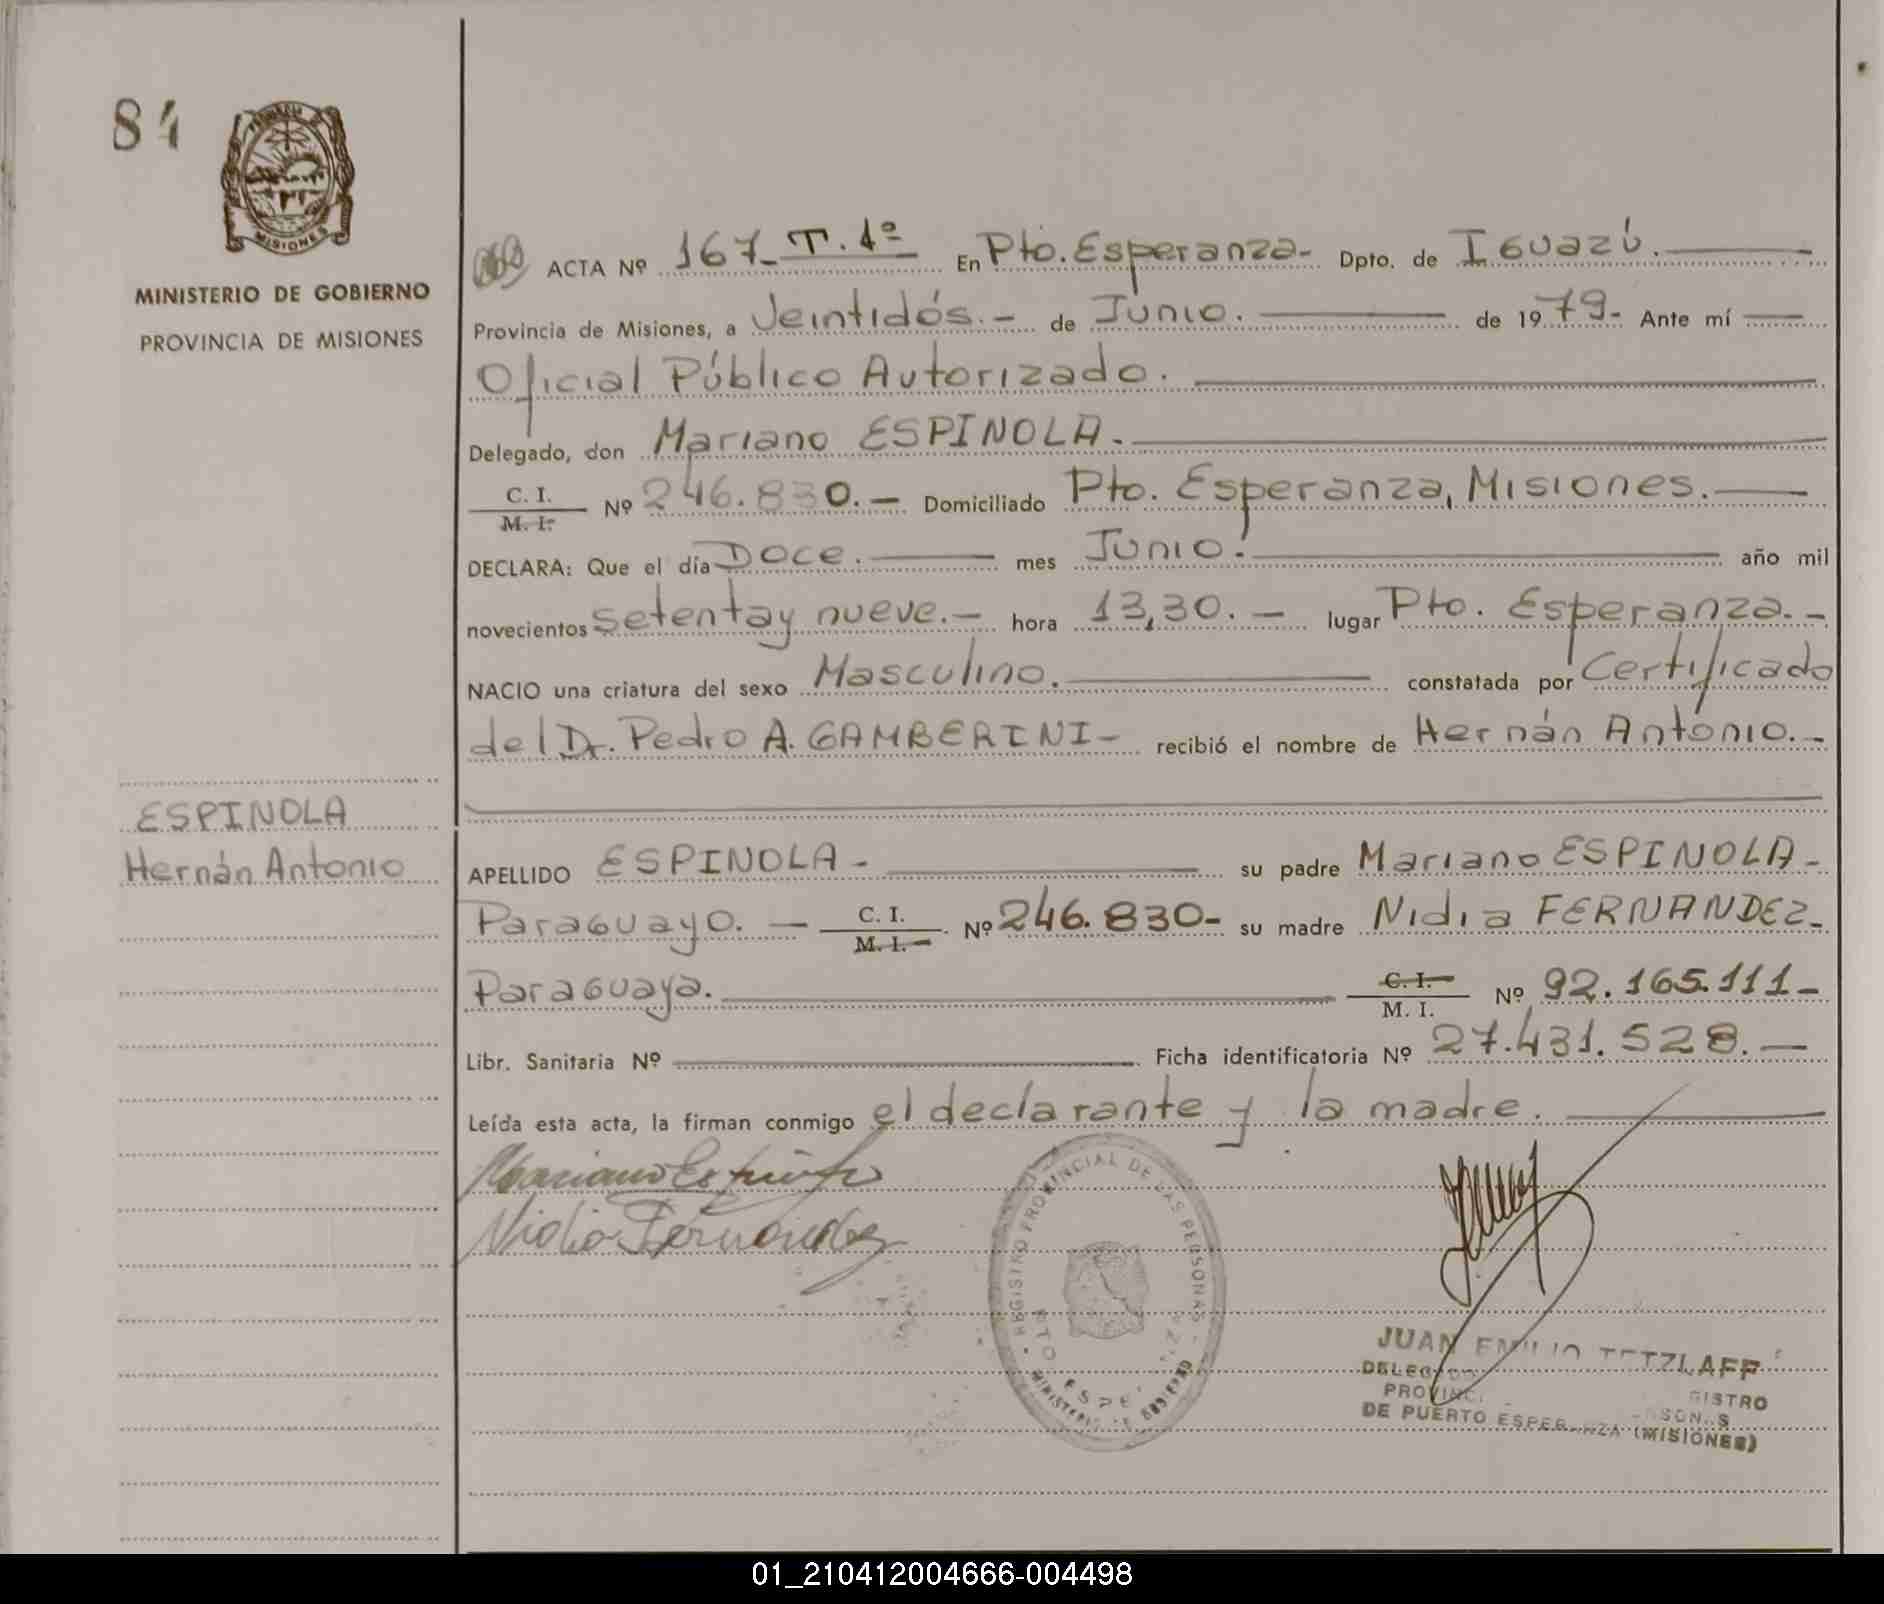 84
MISIONES
MINISTERIO DE GOBIERNO
PROVINCIA DE MISIONES
ACTA Nº 167_ T. 1º En Pto. Esperanza- Dpto. de Iguazú.
Provincia de Misiones, a Veintidós.- de Junio. de 1979- Ante mí
Oficial Público Autorizado.
Delegado, don Mariano ESPINOLA.
C. I.
M. I. Nº 246.830.- Domiciliado Pto. Esperanza, Misiones.
DECLARA: Que el día Doce. mes Junio. año mil
novecientos setenta y nueve.- hora 13,30.- lugar Pto. Esperanza.-
NACIO una criatura del sexo Masculino. constatada por Certificado
del Dr. Pedro A. GAMBERINI- recibió el nombre de Hernán Antonio.-
ESPINOLA
Hernán Antonio
APELLIDO ESPINOLA- su padre Mariano ESPINOLA-
Paraguayo.- C. I.
M. I. Nº 246.830- su madre Nidia FERNANDEZ-
Paraguaya. C. I.
M. I. Nº 92.165.111-
Libr. Sanitaria Nº Ficha identificatoria Nº 27.431.528.-
Leída esta acta, la firman conmigo el declarante y la madre.
Mariano Espinola
Nidia Fernandez
REGISTRO PROVINCIAL DE LAS PERSONAS
MINISTERIO DE GOBIERNO
JUAN EMILIO TETZLAFF
DE PUERTO ESPERANZA (MISIONES)
01_210412004666-004498